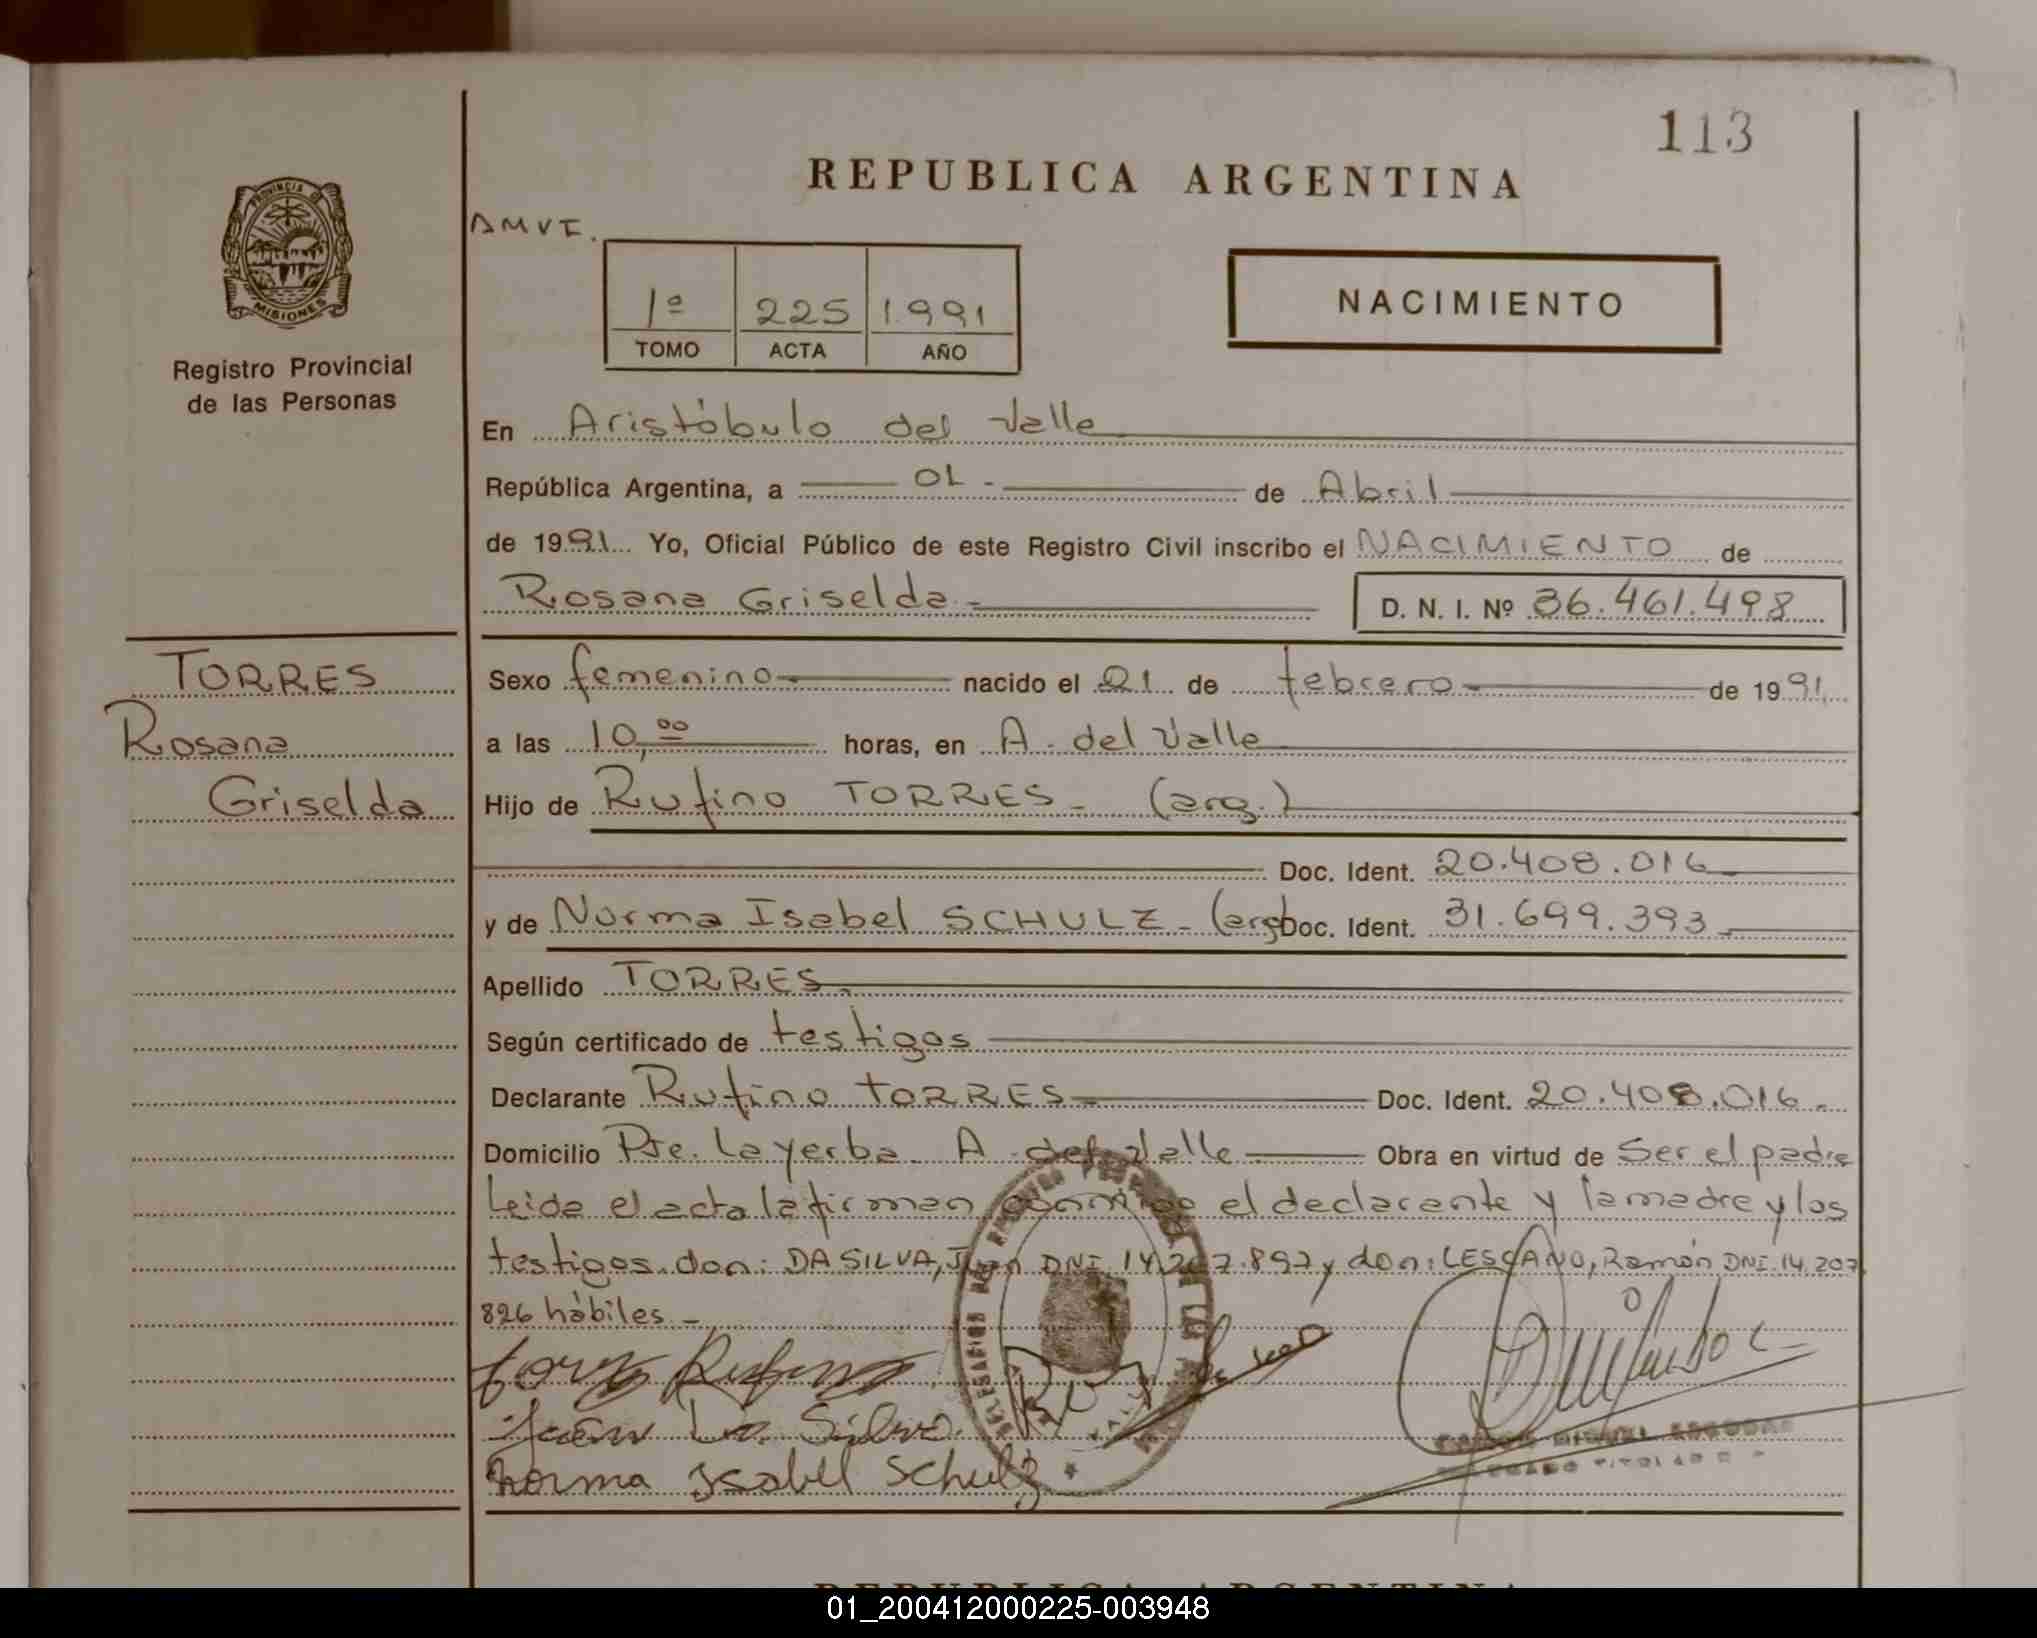 113
REPUBLICA ARGENTINA
PROVINCIA DE
MISIONES
Registro Provincial
de las Personas
AMVI.
1º 225 1.991
TOMO ACTA AÑO
NACIMIENTO
En Aristóbulo del Valle
República Argentina, a 01 - de Abril
de 1991 Yo, Oficial Público de este Registro Civil inscribo el NACIMIENTO de
Rosana Griselda - D. N. I. Nº 36.461.498
TORRES
Rosana
Griselda
Sexo femenino nacido el 21 de febrero de 1991
a las 10,00 horas, en A. del Valle
Hijo de Rufino TORRES - (arg.)
Doc. Ident. 20.408.016
y de Norma Isabel SCHULZ - (arg) Doc. Ident. 31.699.393
Apellido TORRES
Según certificado de testigos
Declarante Rufino TORRES Doc. Ident. 20.408.016 -
Domicilio Pje. La yerba A. del Valle Obra en virtud de Ser el padre
Leida el acta la firman conmigo el declarante y la madre y los
testigos don: DA SILVA, Juan DNI 14.207.897 y don: LESCANO, Ramón DNI. 14.207
826 hábiles -
Torres Rufino
Juan Da Silva
Norma Isabel Schulz
RAMON MIGUEL ESCOBAR
REPUBLICA ARGENTINA
01_200412000225-003948